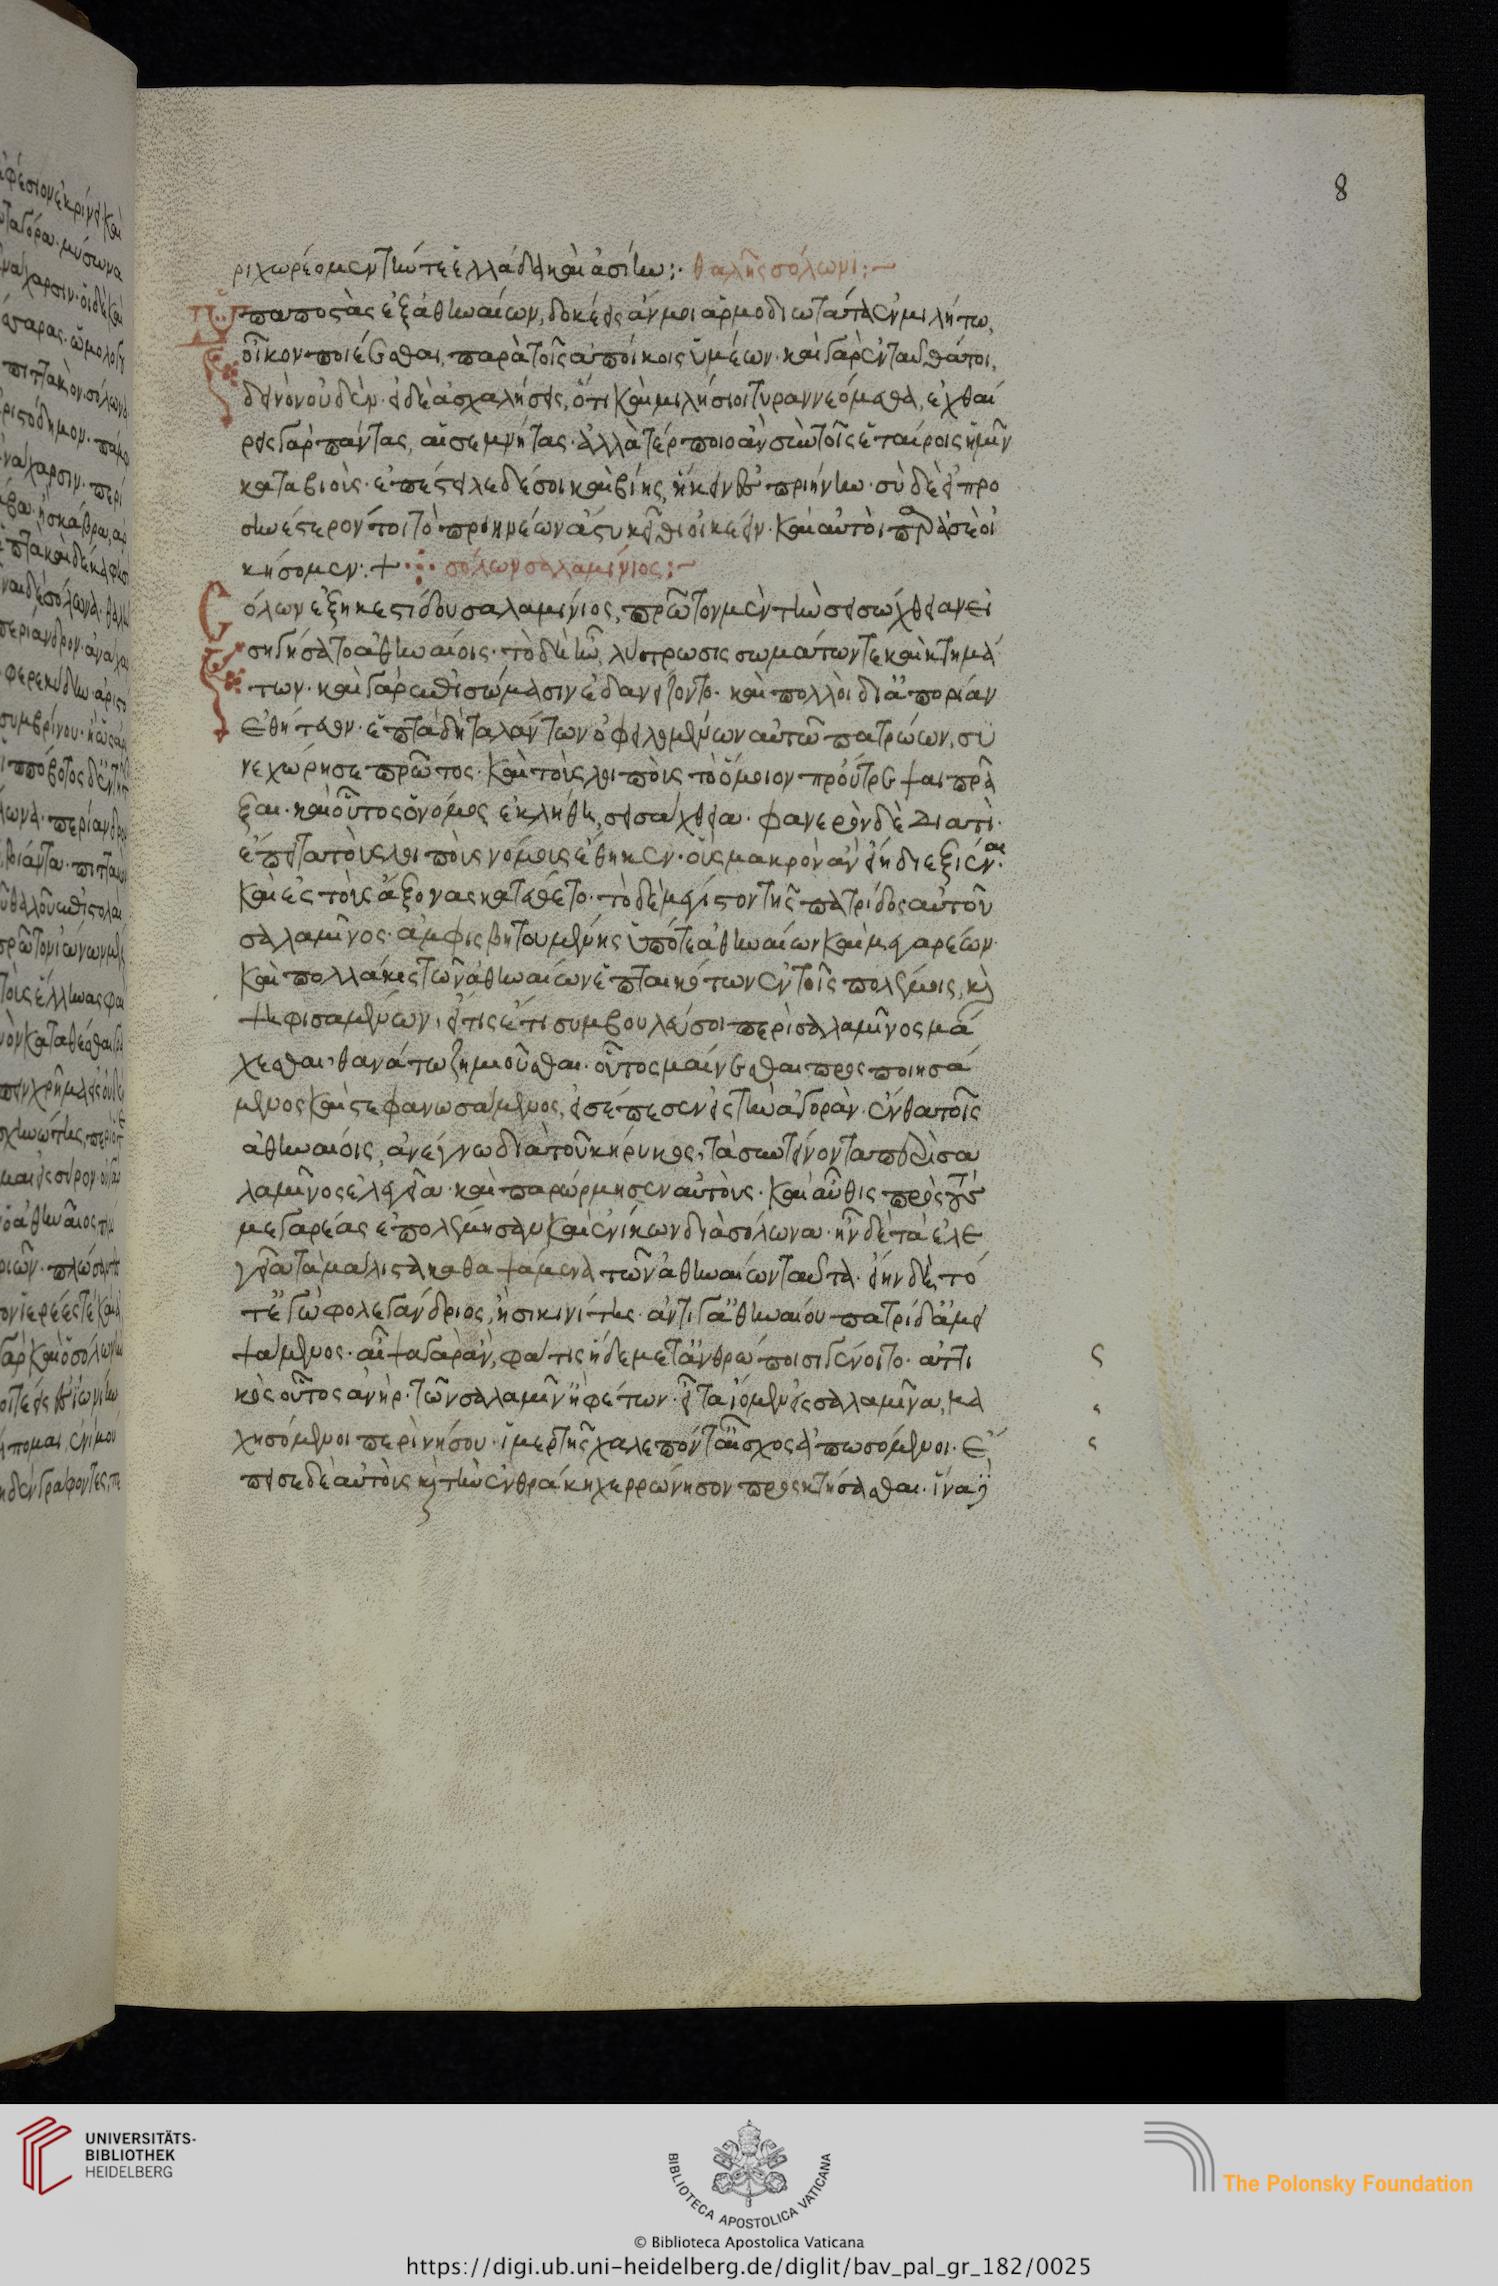 8
ριχωρέομεν τήν τε ἑλλάδα καὶ ἀσίην:· θαλῆς σόλωνι:~
ὑπαποστὰς ἐξ ἀθηναίων, δοκέεις ἄν μοι ἁρμοδιώτατα ἐν μιλήτω,
οἶκον ποιέεσθαι, παρὰ τοῖς ἀποίκοις ὑμέων· καὶ γὰρ ἐνταῦθά τοι,
δεινὸν οὐδέν· εἰ δὲ ἀσχαλήσεις, ὅτι καὶ μιλήσιοι τυραννεόμεθα, ἐχθαί
ρεις γὰρ πάντας, αἰσεμνήτας· ἀλλὰ τέρποιο ἂν σὺν τοῖς ἑταίροις ἡμῖν
καταβιούς· ἐπέστειλε δέ σοι καὶ βίης, ἥκειν ἐς πριήνην· σὺ δὲ εἰ προ
σηνέστερόν τοι τὸ πριηνέων ἄστυ κεῖθι οἰκέειν· καὶ αὐτοὶ παρὰ σὲ οἰ
κήσομεν:+ ·:· σόλων σαλαμίνιος:~
Σόλων ἐξηκεστίδου σαλαμίνιος, πρῶτον μὲν τὴν σεισάχθειαν εἰ
σηγήσατο ἀθηναίοις· τὸ δὲ ἦν, λύτρωσις σωμάτων τε καὶ κτημά
των· καὶ γὰρ ἐπὶ σώμασιν ἐδανείζοντο· καὶ πολλοὶ δι' ἀπορίαν
ἐθήτευον· ἑπτὰ δὴ ταλάντων ὀφειλομένων αὐτῶ πατρώων, συ
νεχώρησε πρῶτος· καὶ τοὺς λοιποὺς τὸ ὅμοιον προύτρεψαι πρᾶ
ξαι· καὶ οὗτος ὁ νόμος ἐκλήθη, σεισάχθεια· φανερὸν δὲ διατί·
ἔπειτα τοὺς λοιποὺς νόμους ἔθηκεν· οὓς μακρὸν ἂν εἴη διεξιέναι·
καὶ ἐς τοὺς ἄξονας κατέθετο· τὸ δὲ μέγιστον τῆς πατρίδος αὐτοῦ
σαλαμῖνος· ἀμφισβητουμένης ὑπό τε ἀθηναίων καὶ μεγαρέων·
καὶ πολλάκις τῶν ἀθηναίων ἐπταικότων ἐν τοῖς πολέμοις, καὶ
ψηφισαμένων, εἴ τις ἔτι συμβουλεύσοι περὶ σαλαμῖνος μά
χεσθαι, θανάτω ζημιοῦσθαι· οὗτος μαίνεσθαι προσποιησά
μενος καὶ στεφανωσάμενος, εἰσέπεσεν εἰς τὴν ἀγοράν· ἔνθα τοῖς
ἀθηναίοις, ἀνέγνω διὰ τοῦ κήρυκος, τὰ συντείνοντα περὶ σα
λαμῖνος ἐλεγεῖα· καὶ παρώρμησεν αὐτούς· καὶ αὖθις πρὸς τοὺς
μεγαρέας ἐπολέμησαν καὶ ἐνίκων διὰ σόλωνα· ἦν δὲ τὰ ἐλε
γεῖα τὰ μάλιστα καθαψάμενα τῶν ἀθηναίων ταῦτα· εἴην δὲ τό
τ' ἐγὼ φολεγάνδριος, ἢ σικινίτης· ἀντί γ' ἀθηναίου πατρίδ' ἀμει
ψάμενος· αἶψα γὰρ ἂν, φάτις ἥδε μετ' ἀνθρώποισι γένοιτο· ἀττι
κὸς οὗτος ἀνήρ· τῶν σαλαμῖν' ἀφέτων· εἶτα ἴομεν εἰς σαλαμῖνα, μα
χησόμενοι περὶ νήσου· ἱμερτῆς χαλεπόν τ' αἶσχος ἀπωσόμενοι· ἔ
πεισε δὲ αὐτοὺς καὶ τὴν ἐν θράκη χερρόνησον προσκτήσασθαι· ἵνα
UNIVERSITÄTS-
BIBLIOTHEK
HEIDELBERG
BIBLIOTECA APOSTOLICA VATICANA
The Polonsky Foundation
© Biblioteca Apostolica Vaticana
https://digi.ub.uni-heidelberg.de/diglit/bav_pal_gr_182/0025